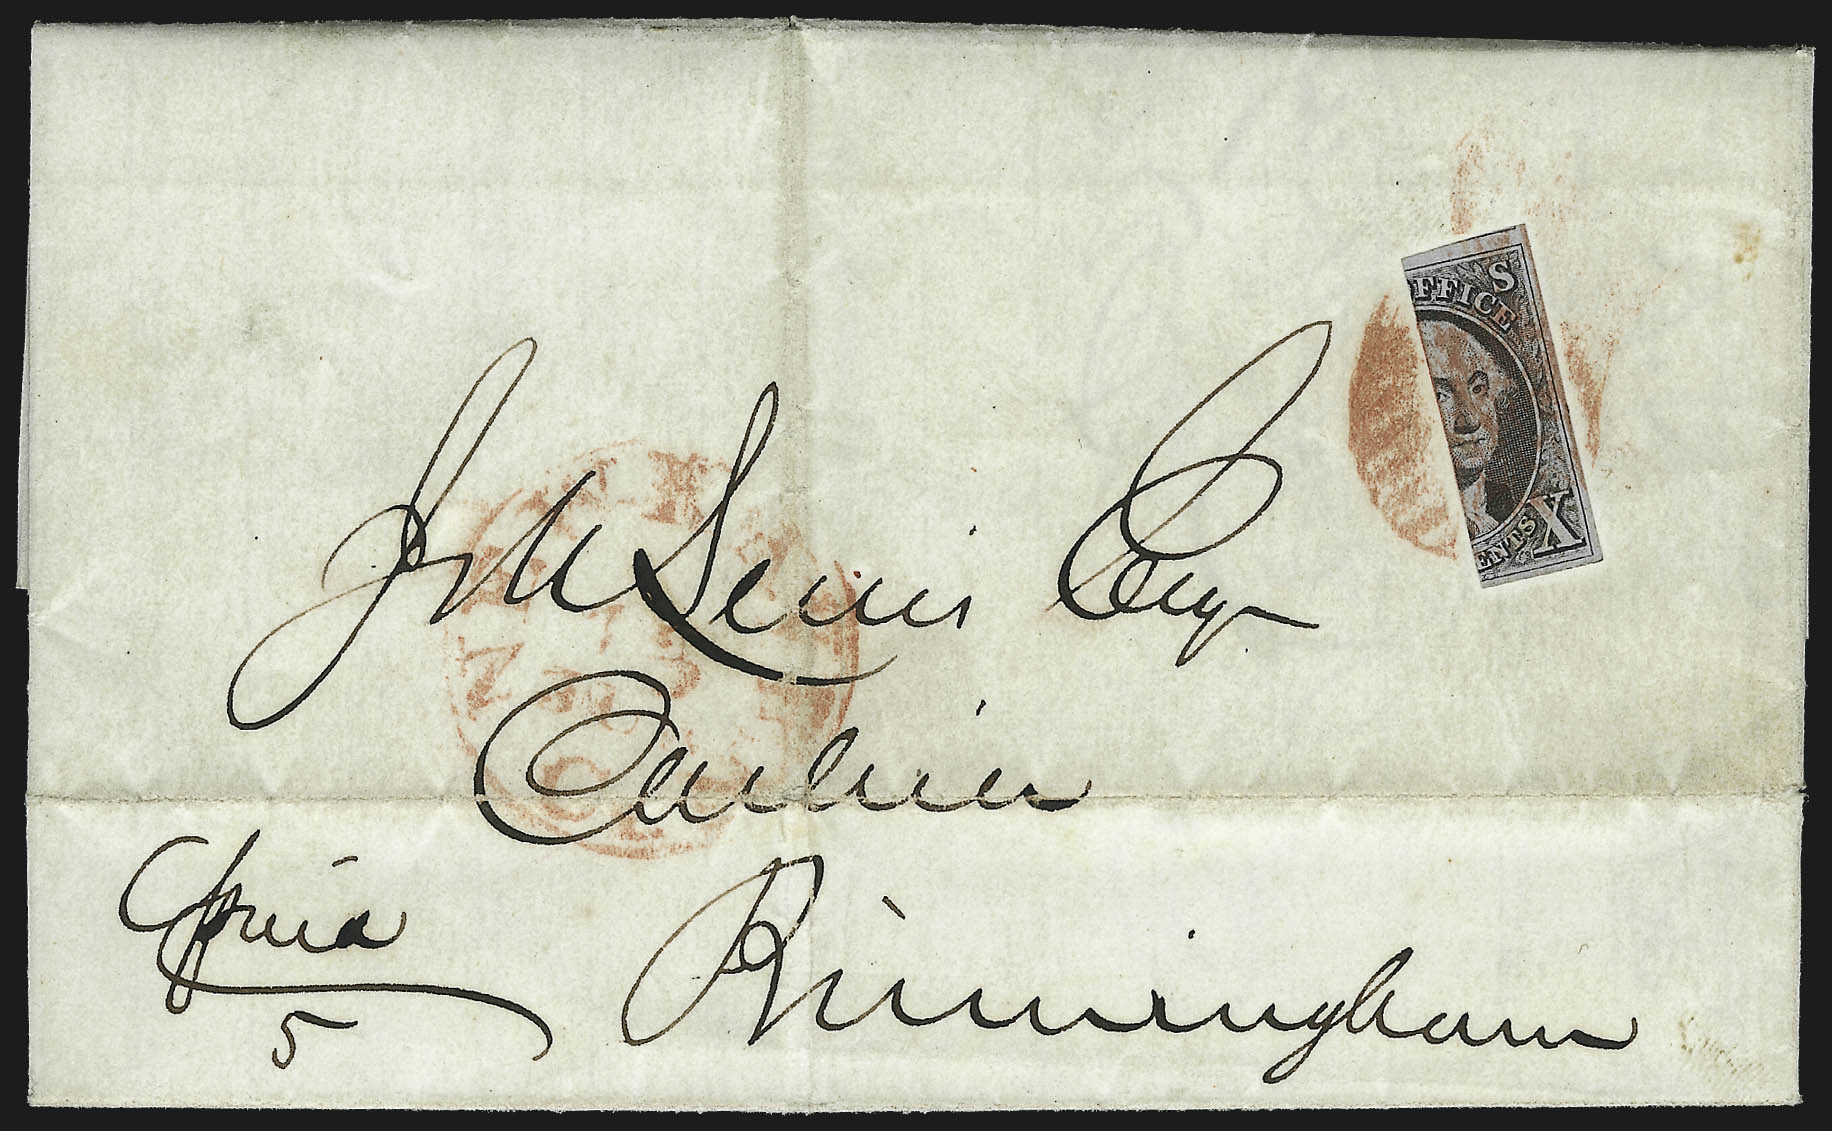 S
FFICE
ENTS X
Jos W Lewis Esq
Cashier
Birmingham
Paid
5